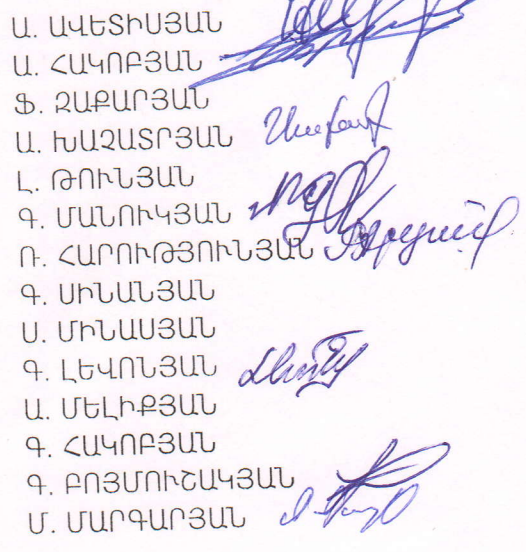 Ա. ԱՎԵՏԻՍՅԱՆ
Ա. ՀԱԿՈԲՅԱՆ
Ֆ. ԶԱՔԱՐՅԱՆ
Ա. ԽԱՉԱՏՐՅԱՆ
Լ. ԹՈՒՆՅԱՆ
Գ. ՄԱՆՈՒԿՅԱՆ
Ռ. ՀԱՐՈՒԹՅՈՒՆՅԱՆ
Գ. ՍԻՆԱՆՅԱՆ
Ս. ՄԻՆԱՍՅԱՆ
Գ. ԼԵՎՈՆՅԱՆ
Ա. ՄԵԼԻՔՅԱՆ
Գ. ՀԱԿՈԲՅԱՆ
Գ. ԲՈՅՄՈՒՇԱԿՅԱՆ
Մ. ՄԱՐԳԱՐՅԱՆ